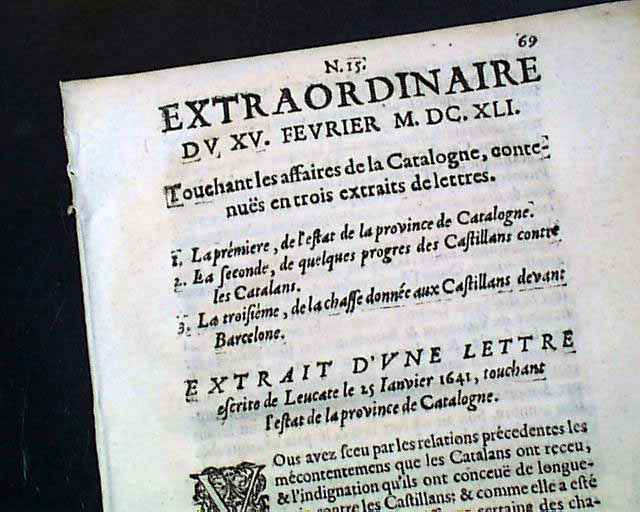 69
N. 15.
EXTRAORDINAIRE
DV XV. FEVRIER M. DC. XLI.
Touchant les affaires de la Catalogne, conte-
nuës en trois extraits de lettres.
1. La prémiere, de l'estat de la province de Catalogne.
2. La seconde, de quelques progres des Castillans contre
les Catalans.
3. La troisiéme, de la chasse donnée aux Castillans devant
Barcelone.
EXTRAIT D'VNE LETTRE
escrite de Leucate le 25 Ianvier 1641, touchant
l'estat de la province de Catalogne.
VOus avez sceu par les relations précedentes les
mécontentemens que les Catalans ont receu,
& l'indignation qu'ils ont conceuë de longue-
contre les Castillans: & comme elle a esté
des cha-